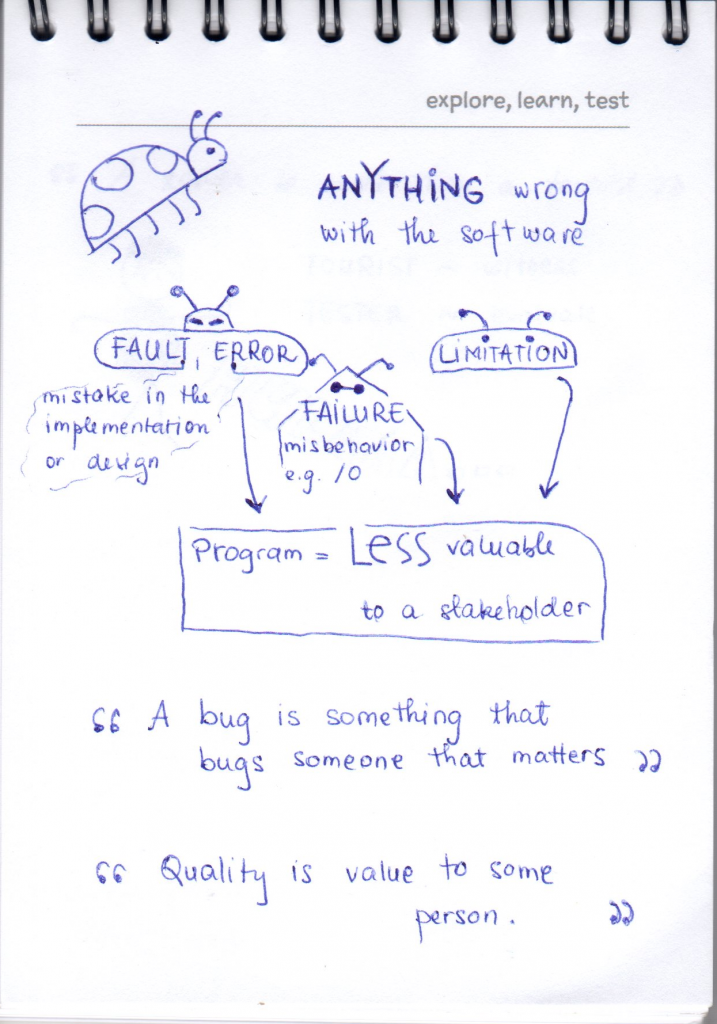 explore, learn, test
ANYTHING wrong
with the software
FAULT, ERROR
mistake in the
implementation
or design
FAILURE
misbehavior
e.g. /0
LIMITATION
Program = LESS valuable
to a stakeholder
“ A bug is something that
bugs someone that matters ”
“ Quality is value to some
person. ”